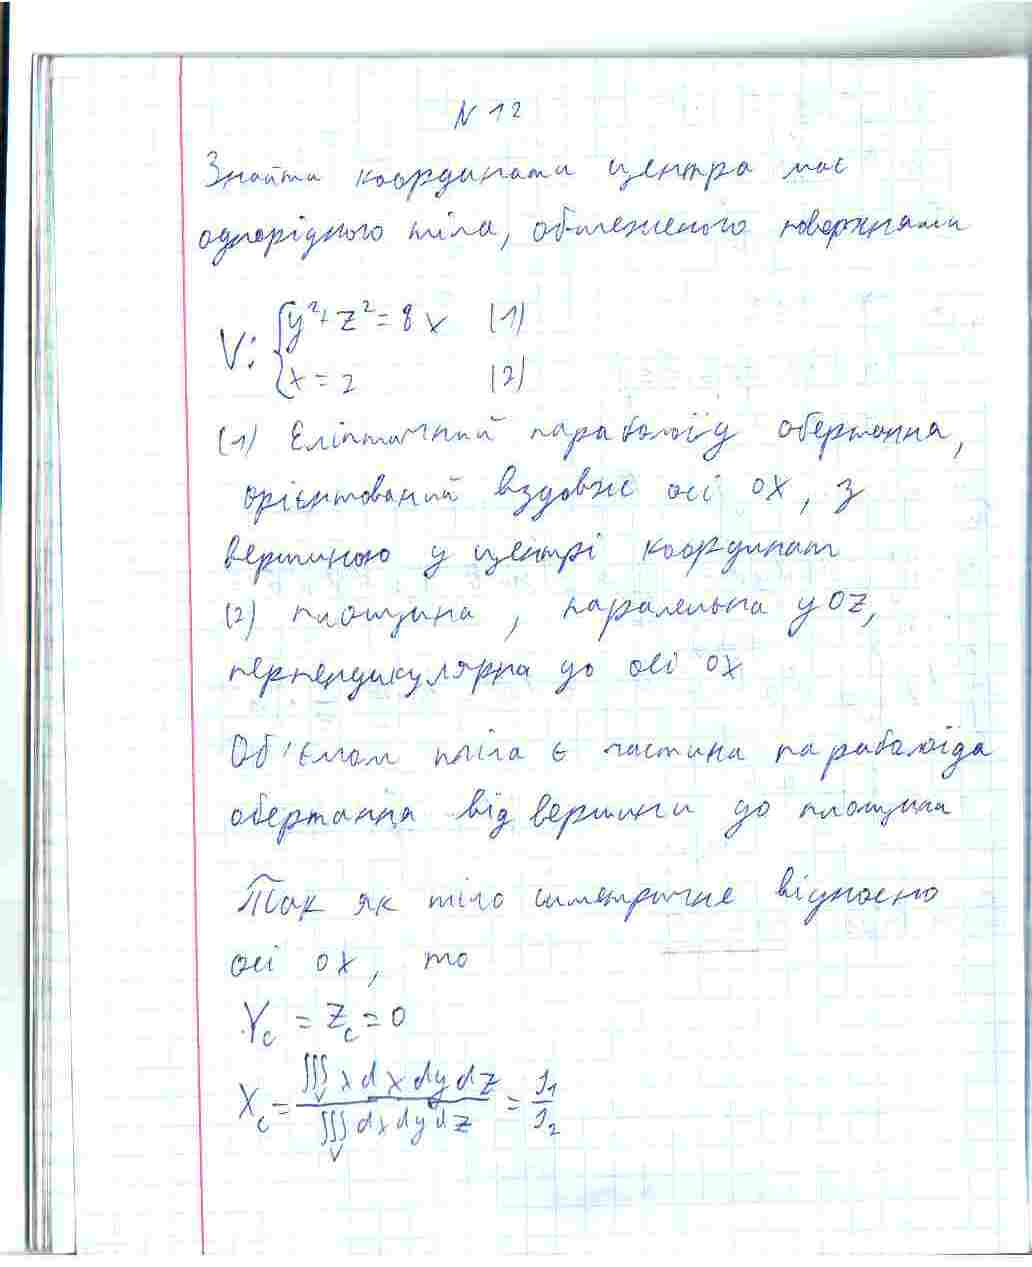 N 12
Знайти координати центра мас
однорідного тіла, обмеженого поверхнями
V: { y² + z² = 8x (1)
x = 2 (2)
(1) Еліптичний параболоїд обертання,
орієнтований вздовж осі OX, з
вершиною у центрі координат
(2) площина, паралельна yOZ,
перпендикулярна до осі OX
Об'ємом тіла є частина параболоїда
обертання від вершини до площини
Так як тіло симетричне відносно
осі OX, то
Y_c = Z_c = 0
X_c = ∭_V x dx dy dz / ∭_V dx dy dz = I₁ / I₂